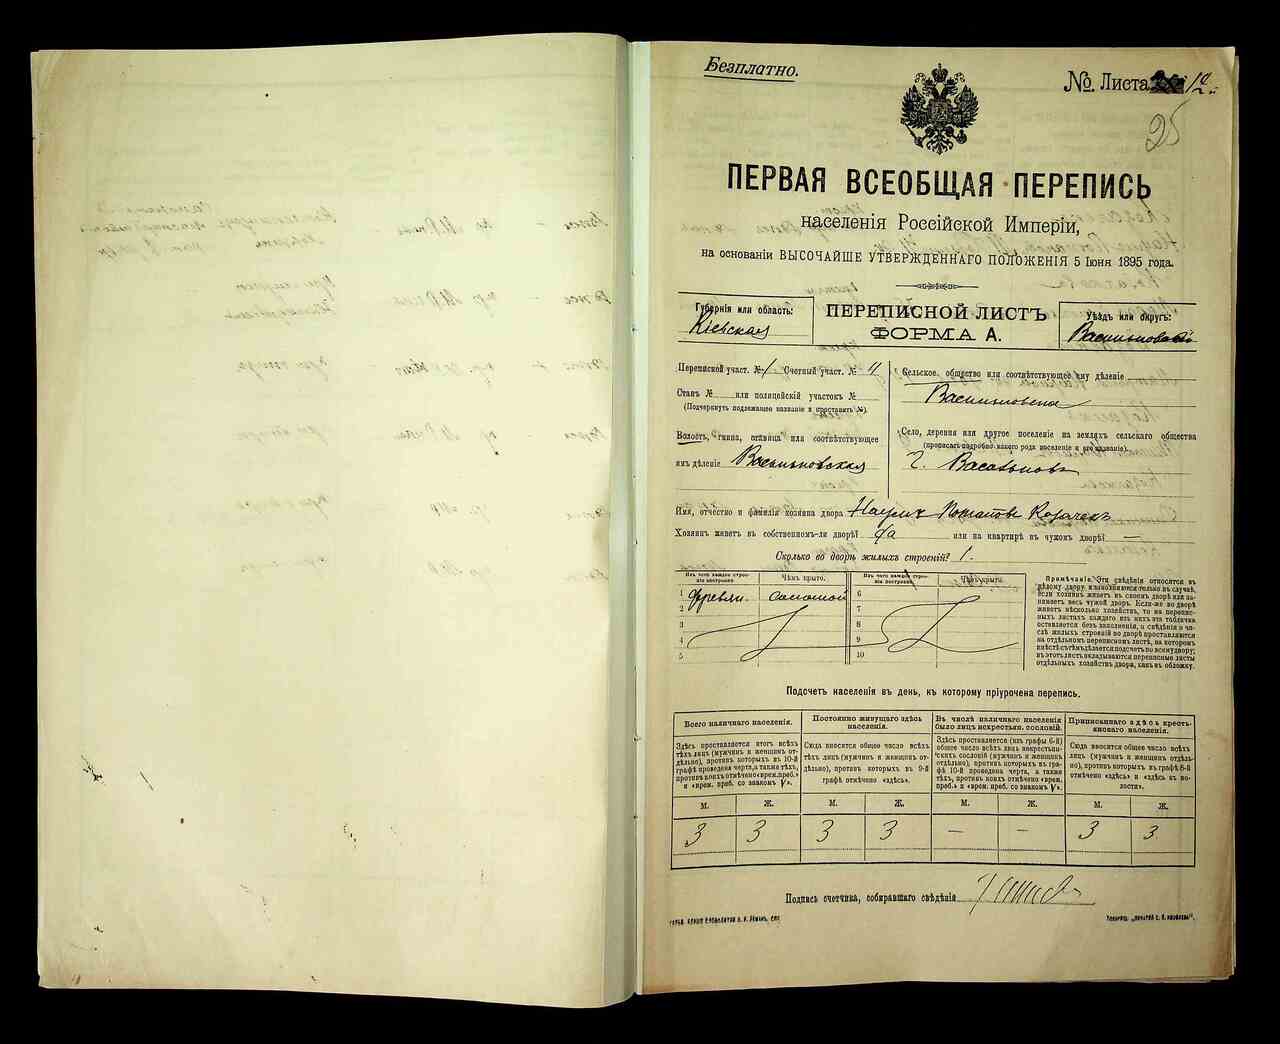 Безплатно.
№ Листа 12
25
ПЕРВАЯ ВСЕОБЩАЯ ПЕРЕПИСЬ
населенія Россійской Имперіи,
на основаніи ВЫСОЧАЙШЕ УТВЕРЖДЕННАГО ПОЛОЖЕНІЯ 5 Іюня 1895 года.
Губернія или область:
Кіевская
ПЕРЕПИСНОЙ ЛИСТЪ
ФОРМА А.
Уѣздъ или округъ:
Васильковскій
Переписной участ. № 1 Счетный участ. № 4
Станъ № или полицейскій участокъ №
(Подчеркнуть подлежащее названіе и проставить №).
Волость, гмина, станица или соотвѣтствующее
имъ дѣленіе Васильковская
Сельское общество или соотвѣтствующее ему дѣленіе
Васильковское
Село, деревня или другое поселеніе на земляхъ сельскаго общества
(прописать подробно какого рода населеніе и его названіе).
г. Васильковъ
Имя, отчество и фамилія хозяина двора Наумъ Потаповъ Козаченко
Хозяинъ живетъ въ собственномъ-ли дворѣ? да или на квартирѣ въ чужомъ дворѣ? —
Сколько во дворѣ жилыхъ строеній? 1.
Изъ чего каждое строеніе построено. Чѣмъ крыто. Изъ чего каждое строеніе построено. Чѣмъ крыто.
1 Деревян. соломой 6
2 7
3 8
4 9
5 10
Примѣчаніе. Эти свѣдѣнія относятся къ
цѣлому двору и заполняются только въ случаѣ,
если хозяинъ живетъ въ своемъ дворѣ или занимаетъ
весь чужой дворъ. Если-же во дворѣ
живетъ нѣсколько хозяйствъ, то на переписныхъ
листахъ каждаго изъ нихъ эта табличка
оставляется безъ заполненія, а свѣдѣнія о числѣ
жилыхъ строеній во дворѣ проставляются
на отдѣльномъ переписномъ листѣ, на которомъ
вмѣстѣ съ тѣмъ дѣлается подсчетъ по всему двору;
въ этотъ листъ вкладываются переписные листы
отдѣльныхъ хозяйствъ двора, какъ въ обложку.
Подсчетъ населенія въ день, къ которому пріурочена перепись.
Всего наличнаго населенія.
Здѣсь проставляется итогъ всѣхъ
тѣхъ лицъ (мужчинъ и женщинъ отдѣльно),
противъ которыхъ въ 10-й
графѣ проведена черта, а также тѣхъ,
противъ коихъ отмѣчено «врем. преб.»
и «врем. преб. со знакомъ V».
Постоянно живущаго здѣсь населенія.
Сюда вносится общее число всѣхъ
тѣхъ лицъ (мужчинъ и женщинъ отдѣльно),
противъ которыхъ въ 9-й
графѣ отмѣчено «здѣсь».
Въ числѣ наличнаго населенія было лицъ некрестьян. сословій.
Здѣсь проставляется (изъ графы 6-й)
общее число всѣхъ лицъ некрестьянскихъ
сословій (мужчинъ и женщинъ
отдѣльно), противъ которыхъ въ графѣ
10-й проведена черта, а также
тѣхъ, противъ коихъ отмѣчено «врем.
преб.» и «врем. преб. со знакомъ V».
Приписаннаго здѣсь крестьянскаго населенія.
Сюда вносится общее число всѣхъ
лицъ (мужчинъ и женщинъ отдѣльно),
противъ которыхъ въ графѣ 8-й
отмѣчено «здѣсь» и «здѣсь въ волости».
М. Ж. М. Ж. М. Ж. М. Ж.
3 3 3 3 — — 3 3
Подпись счетчика, собиравшаго свѣдѣнія